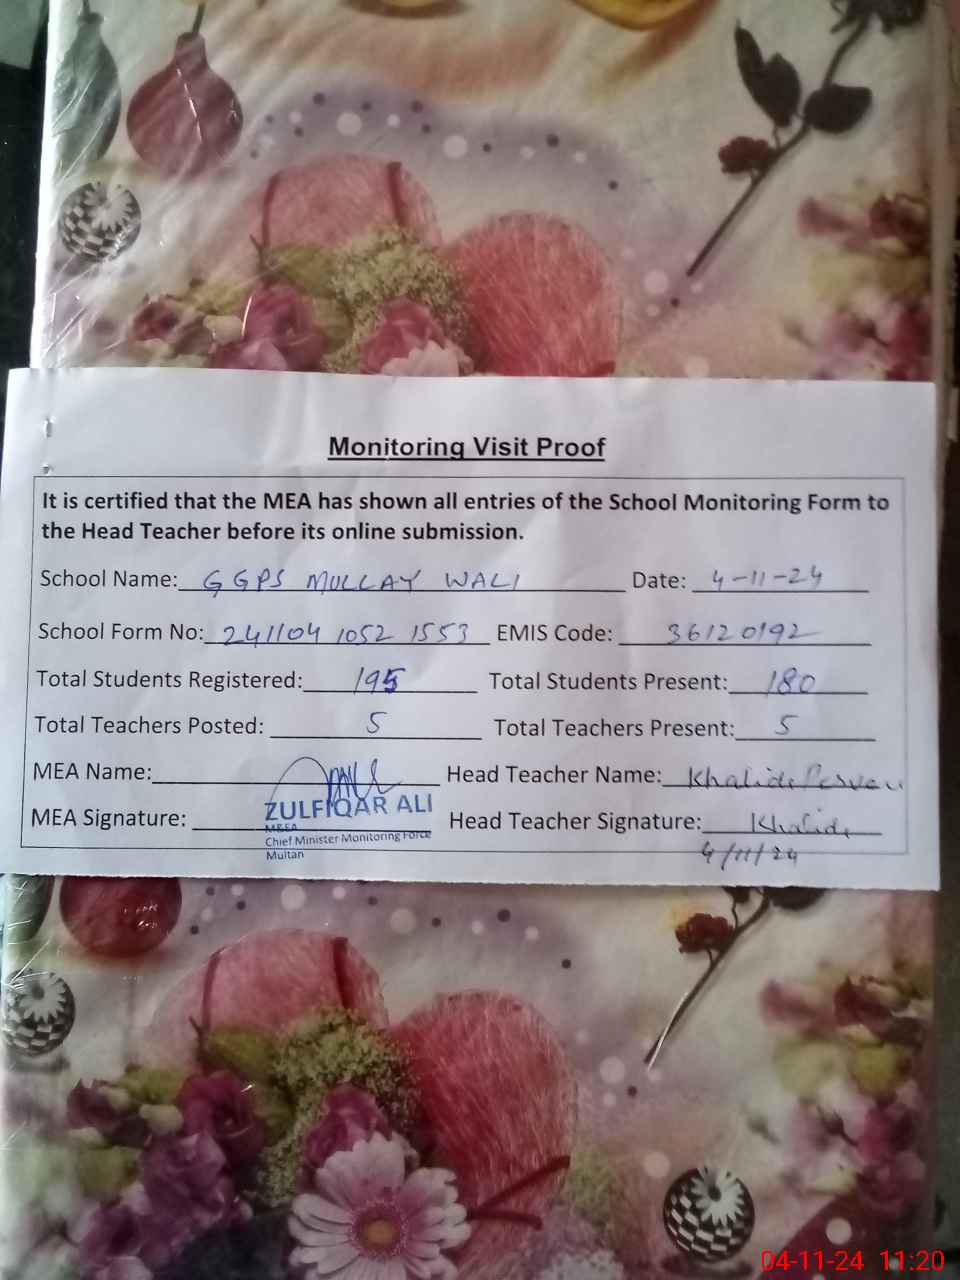 Monitoring Visit Proof
It is certified that the MEA has shown all entries of the School Monitoring Form to
the Head Teacher before its online submission.
School Name: GGPS MULLAY WALI Date: 4-11-24
School Form No: 241104 1052 1553 EMIS Code: 36120192
Total Students Registered: 195 Total Students Present: 180
Total Teachers Posted: 5 Total Teachers Present: 5
MEA Name: Head Teacher Name: Khalida Parveen
ZULFIQAR ALI
MEA Signature: Head Teacher Signature: Khalida
MEEA
Chief Minister Monitoring Force
Multan
4/11/24
04-11-24 11:20